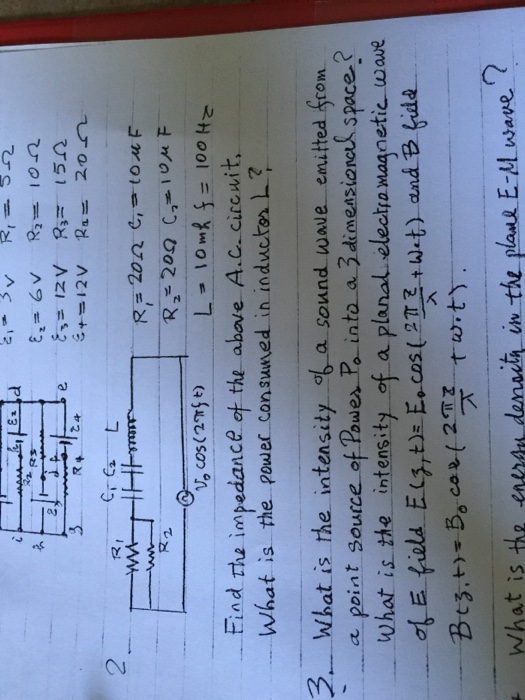 ε₁ = 3V R₁ = 5Ω
ε₂ = 6V R₂ = 10Ω
ε₃ = 12V R₃ = 15Ω
ε₄ = 12V R₄ = 20Ω
i d
h e
g
R₄ ε₄
2.
R₁ C₁ C₂ L
R₂
V₀ cos(2πft)
R₁ = 20Ω C₁ = 10μF
R₂ = 20Ω C₂ = 10μF
L = 10mH f = 100Hz
Find the impedance of the above A.C. circuit.
What is the power consumed in inductor L?
3. What is the intensity of a sound wave emitted from
a point source of Power P₀ into a 3 dimensional space?
What is the intensity of a planal electromagnetic wave
of E field E(z,t) = E₀ cos(2πz/λ + ω·t) and B field
B(z,t) = B₀ cos(2πz/λ + ω·t).
What is the energy density in the plane E-M wave?